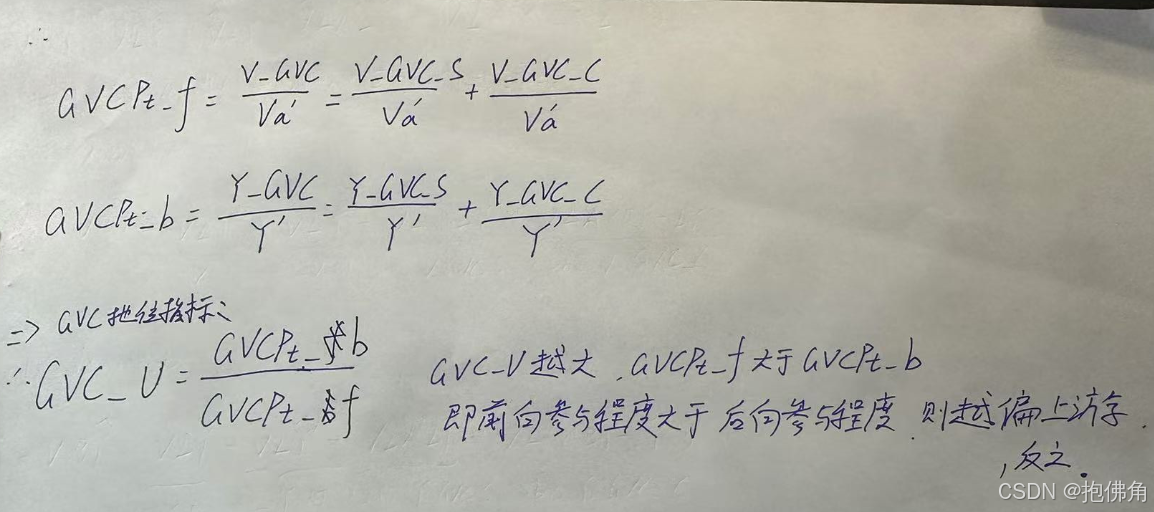 ∴
GVCPt_f = V_GVC/Va' = V_GVC_S/Va' + V_GVC_C/Va'
GVCPt_b = Y_GVC/Y' = Y_GVC_S/Y' + Y_GVC_C/Y'
=> GVC地位指标:
∴ GVC_U = GVCPt_b/GVCPt_f
GVC_U越大,GVCPt_f大于GVCPt_b
即前向参与程度大于后向参与程度,则越偏上游
,反之。
CSDN @抱佛角